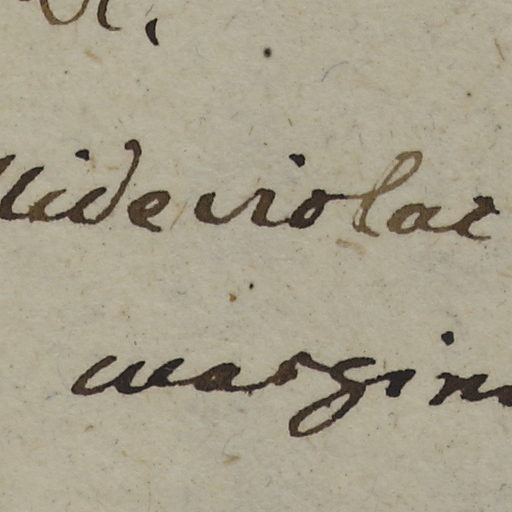 llide violac
margin